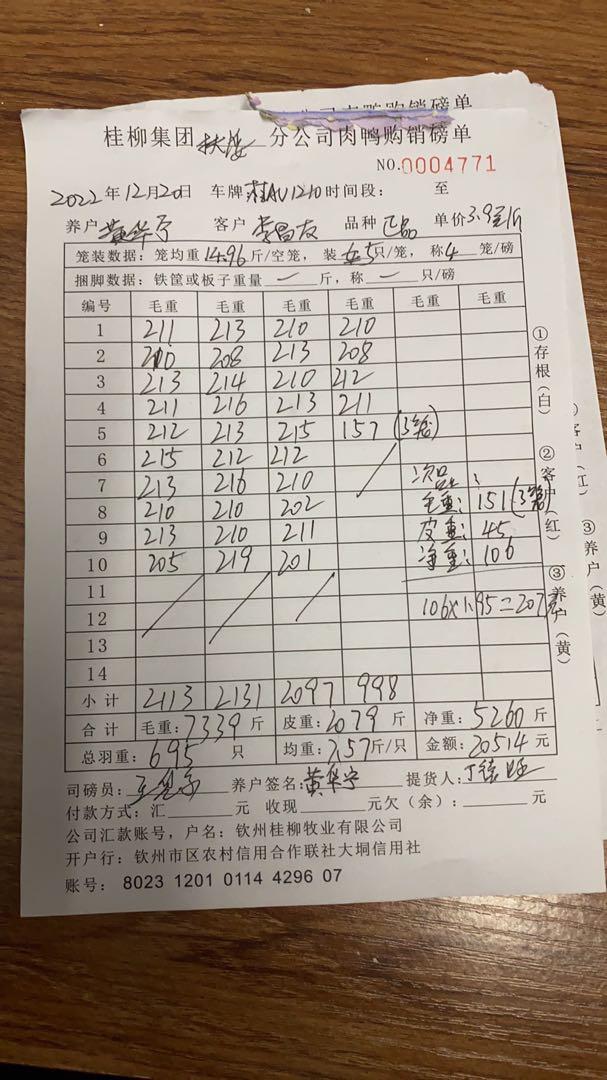 公司肉鸭购销磅单
桂柳集团扶绥分公司肉鸭购销磅单
NO.0004771
2022年12月20日 车牌桂AU1210时间段: 至
养户黄华宁 客户李昌友 品种正品 单价3.9元/斤
笼装数据:笼均重14.96斤/空笼,装5只/笼,称4笼/磅
捆脚数据:铁筐或板子重量一斤,称一只/磅
编号 毛重 毛重 毛重 毛重 毛重 毛重
1 211 213 210 210
2 210 208 213 208
3 213 214 210 212
4 211 216 213 211
5 212 213 215 157(3笼)
6 215 212 212
7 213 216 210 次品:
8 210 210 202 毛重:151(3笼)
9 213 210 211 皮重:45
10 205 219 201 净重:106
11
12 106×1.95=207元
13
14
小计 2113 2131 2097 998
合计 毛重:7339斤 皮重:2079斤 净重:5260斤
总羽重:695只 均重:7.57斤/只 金额:20514元
司磅员: 养户签名:黄华宁 提货人:
付款方式:汇 元 收现 元欠(余): 元
公司汇款账号,户名:钦州桂柳牧业有限公司
开户行:钦州市区农村信用合作联社大垌信用社
账号:8023 1201 0114 4296 07
①存根(白)
②客户(红)
③养户(黄)
客户(红)
③养户(黄)